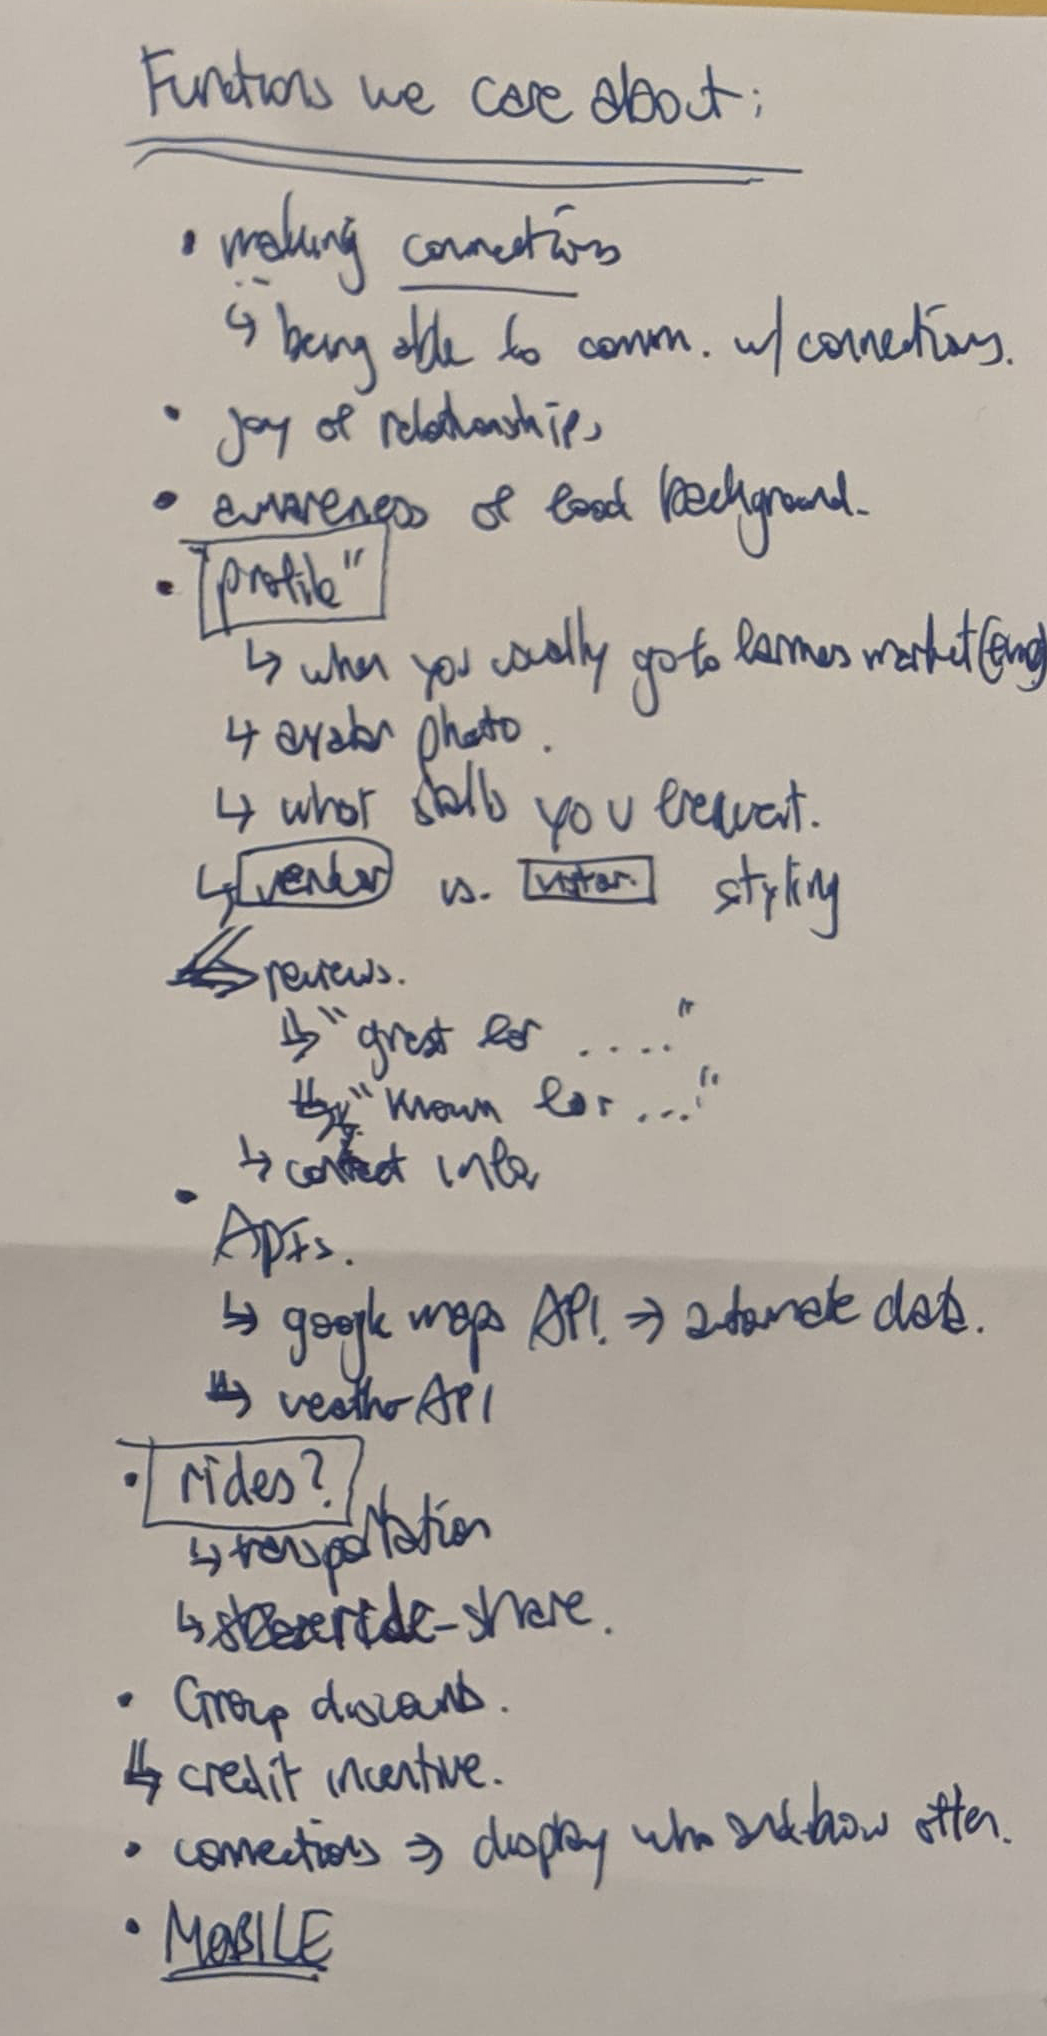 Functions we care about:
• making connections
↳ being able to comm. w/ connections.
• joy of relationships
• awareness of food background.
• "profile"
↳ when you usually go to farmers market (time)
↳ avatar photo.
↳ what stalls you frequent.
↳ vendor vs. visitor styling
↳ reviews.
↳ "great for ...."
↳ "Known for ..."
↳ contact info
• APIs.
↳ google maps API. → automate data.
↳ weather API
• rides?
↳ transportation
↳ ride-share.
• Group discounts.
↳ credit incentive.
• connections → display who and how often.
• MOBILE